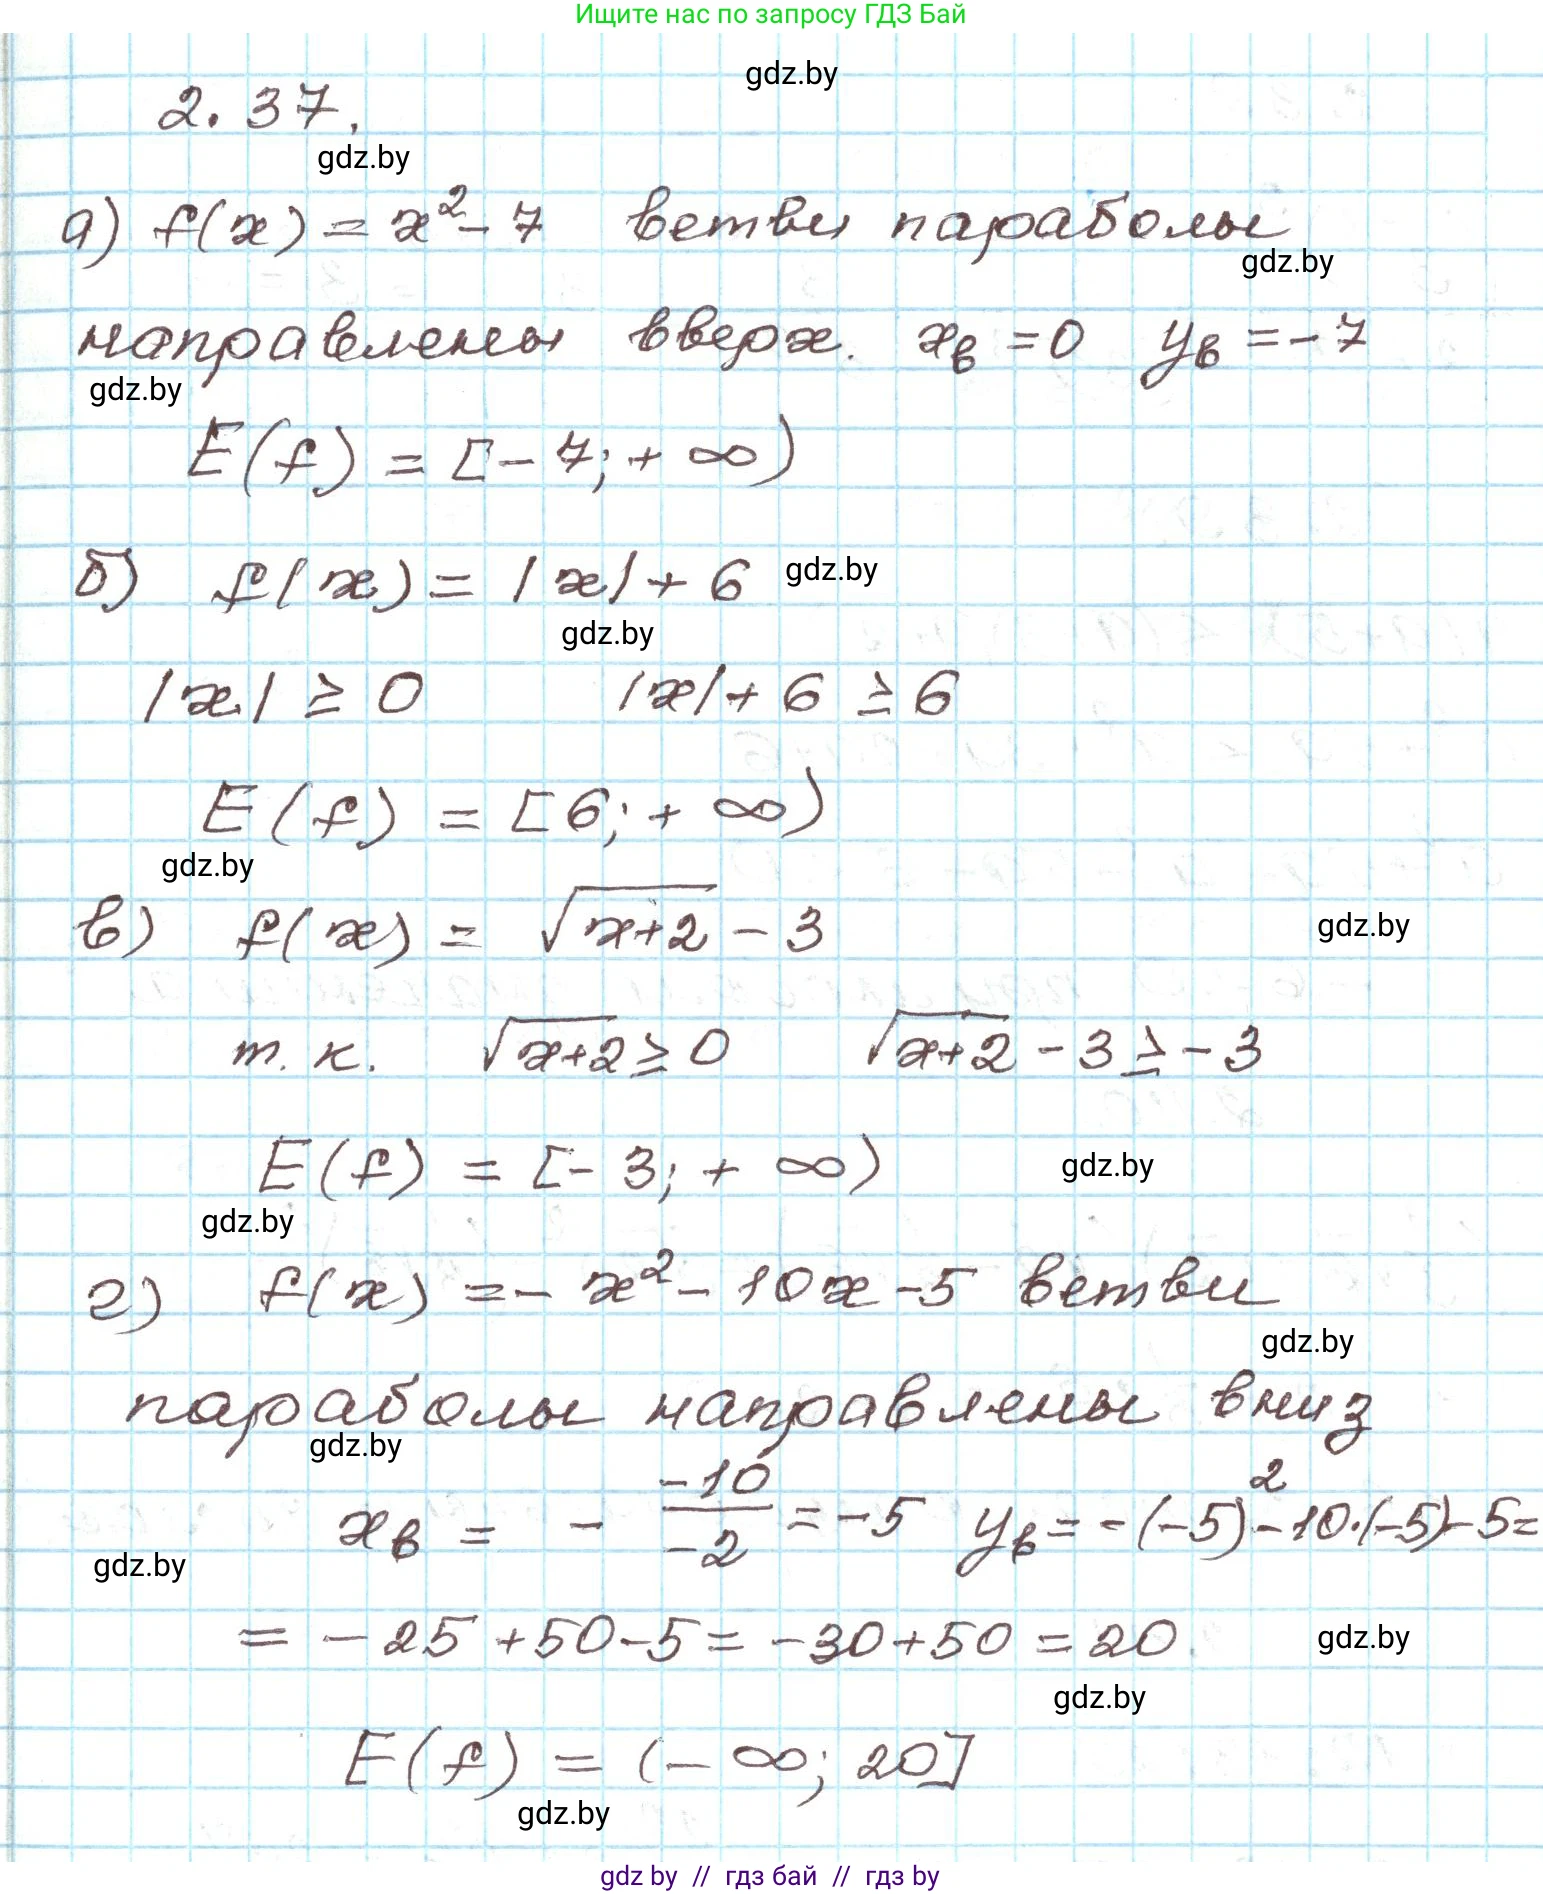 Ищите нас по запросу ГДЗ Бай
gdz.by
2.37.
gdz.by
а) f(x) = x² - 7 ветви параболы
gdz.by
направлены вверх. xв = 0 yв = -7
gdz.by
E(f) = [-7; +∞)
б) f(x) = |x| + 6 gdz.by
gdz.by
|x| ≥ 0 |x| + 6 ≥ 6
E(f) = [6; +∞)
gdz.by
в) f(x) = √(x+2) - 3 gdz.by
т. к. √(x+2) ≥ 0 √(x+2) - 3 ≥ -3
E(f) = [-3; +∞) gdz.by
gdz.by
г) f(x) = -x² - 10x - 5 ветви
gdz.by
параболы направлены вниз
gdz.by
xв = - -10/-2 = -5 yв = -(-5)² - 10·(-5) - 5 =
gdz.by
= -25 + 50 - 5 = -30 + 50 = 20. gdz.by
gdz.by
E(f) = (-∞; 20]
gdz.by
gdz by // гдз бай // гдз by